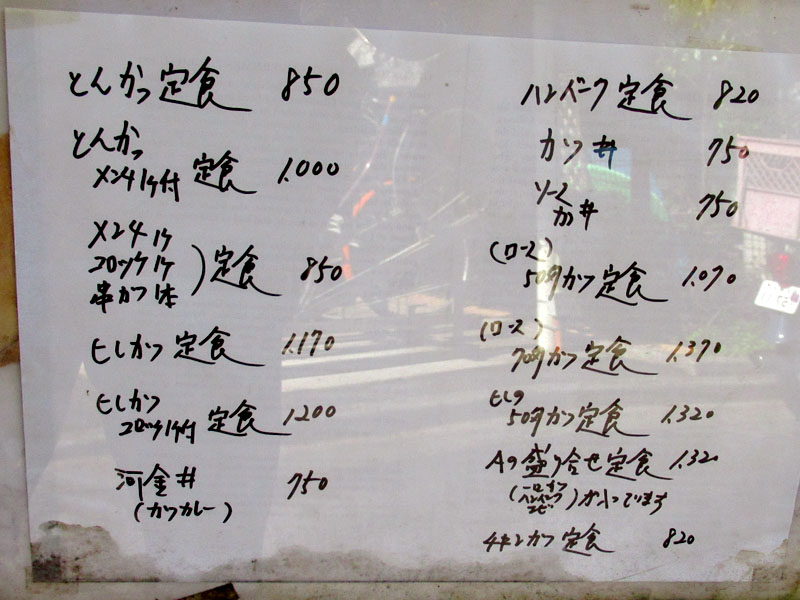 とんかつ定食 850
とんかつ
メンチ1ケ付 定食 1.000
メンチ1ケ
コロッケ1ケ
串カツ1本
)定食 850
ヒレかつ定食 1.170
ヒレかつ
コロッケ1ケ付 定食 1200
河金丼 750
(カツカレー)
ハンバーク定食 820
カツ丼 750
ソース
カツ丼 750
(ロース)
50匁カツ定食 1.070
(ロース)
70匁カツ定食 1.370
ヒレの
50匁カツ定食 1.320
Aの盛り合せ定食 1.320
(一口カツ
ハンバーク
エビ
)が入ってます
チキンカツ定食 820